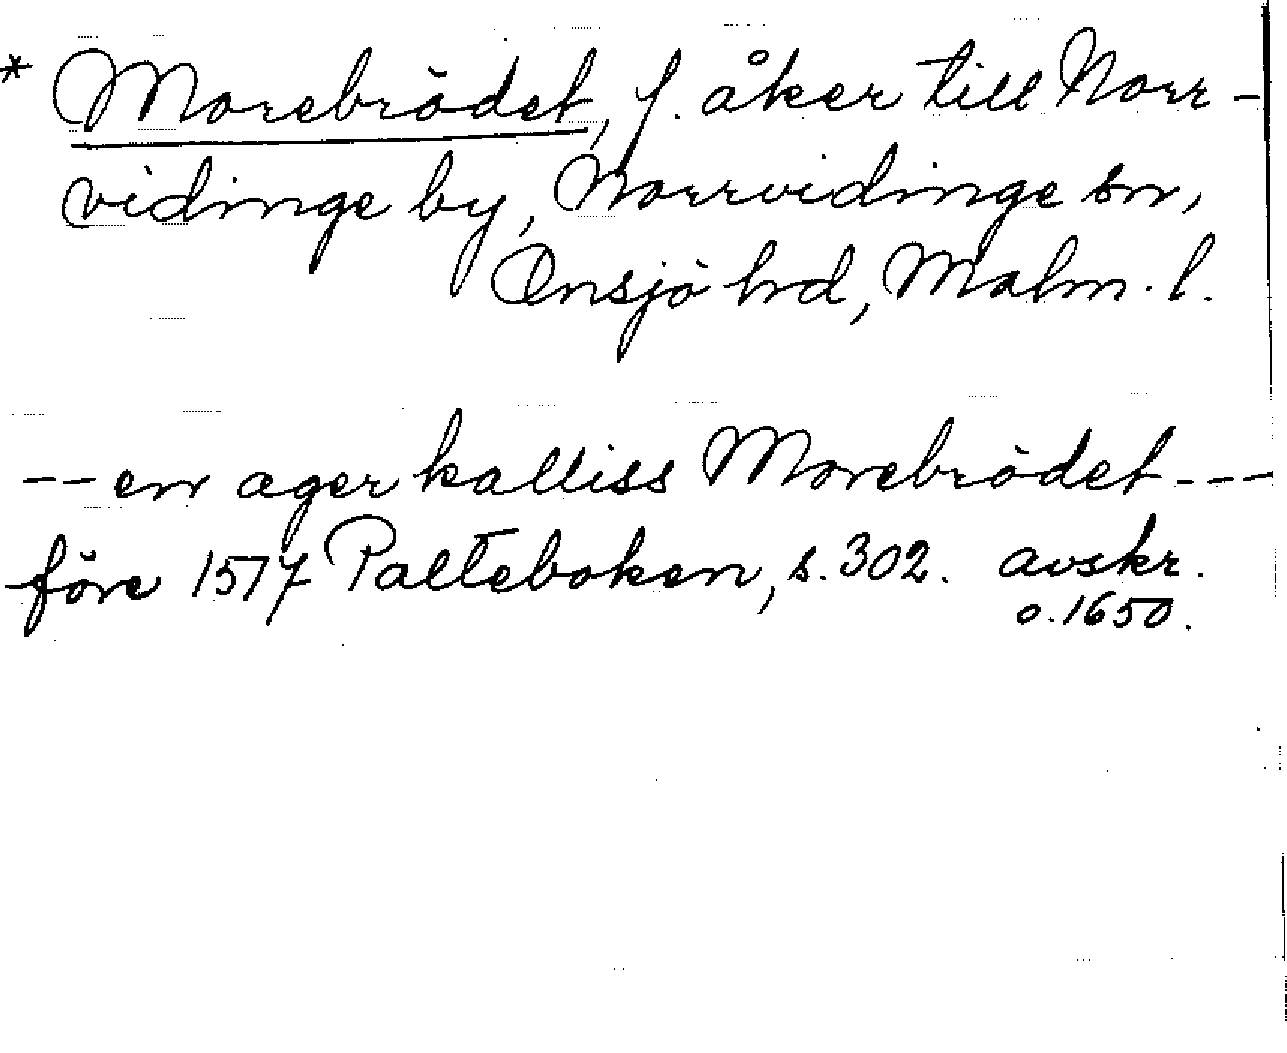 * Morebrödet, f. åker till Norr-
vidinge by, Norrvidinge sn,
Onsjö hd, Malm. l.
-- en ager kalliss Morebrödet ---
före 1577 Palteboken, s. 302. avskr.
o. 1650.